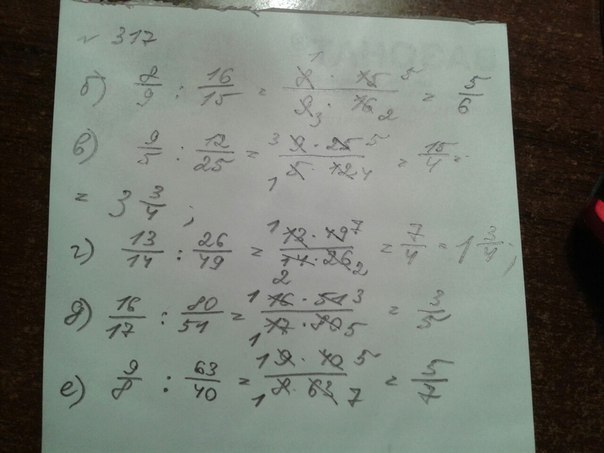 № 317
б) 8/9 : 16/15 = 8 · 15 / 9 · 16 = 5/6
в) 9/5 : 12/25 = 9 · 25 / 5 · 12 = 15/4 =
= 3 3/4 ;
г) 13/14 : 26/49 = 13 · 49 / 14 · 26 = 7/4 = 1 3/4 ;
д) 16/17 : 80/51 = 16 · 51 / 17 · 80 = 3/5
е) 9/8 : 63/40 = 9 · 40 / 8 · 63 = 5/7